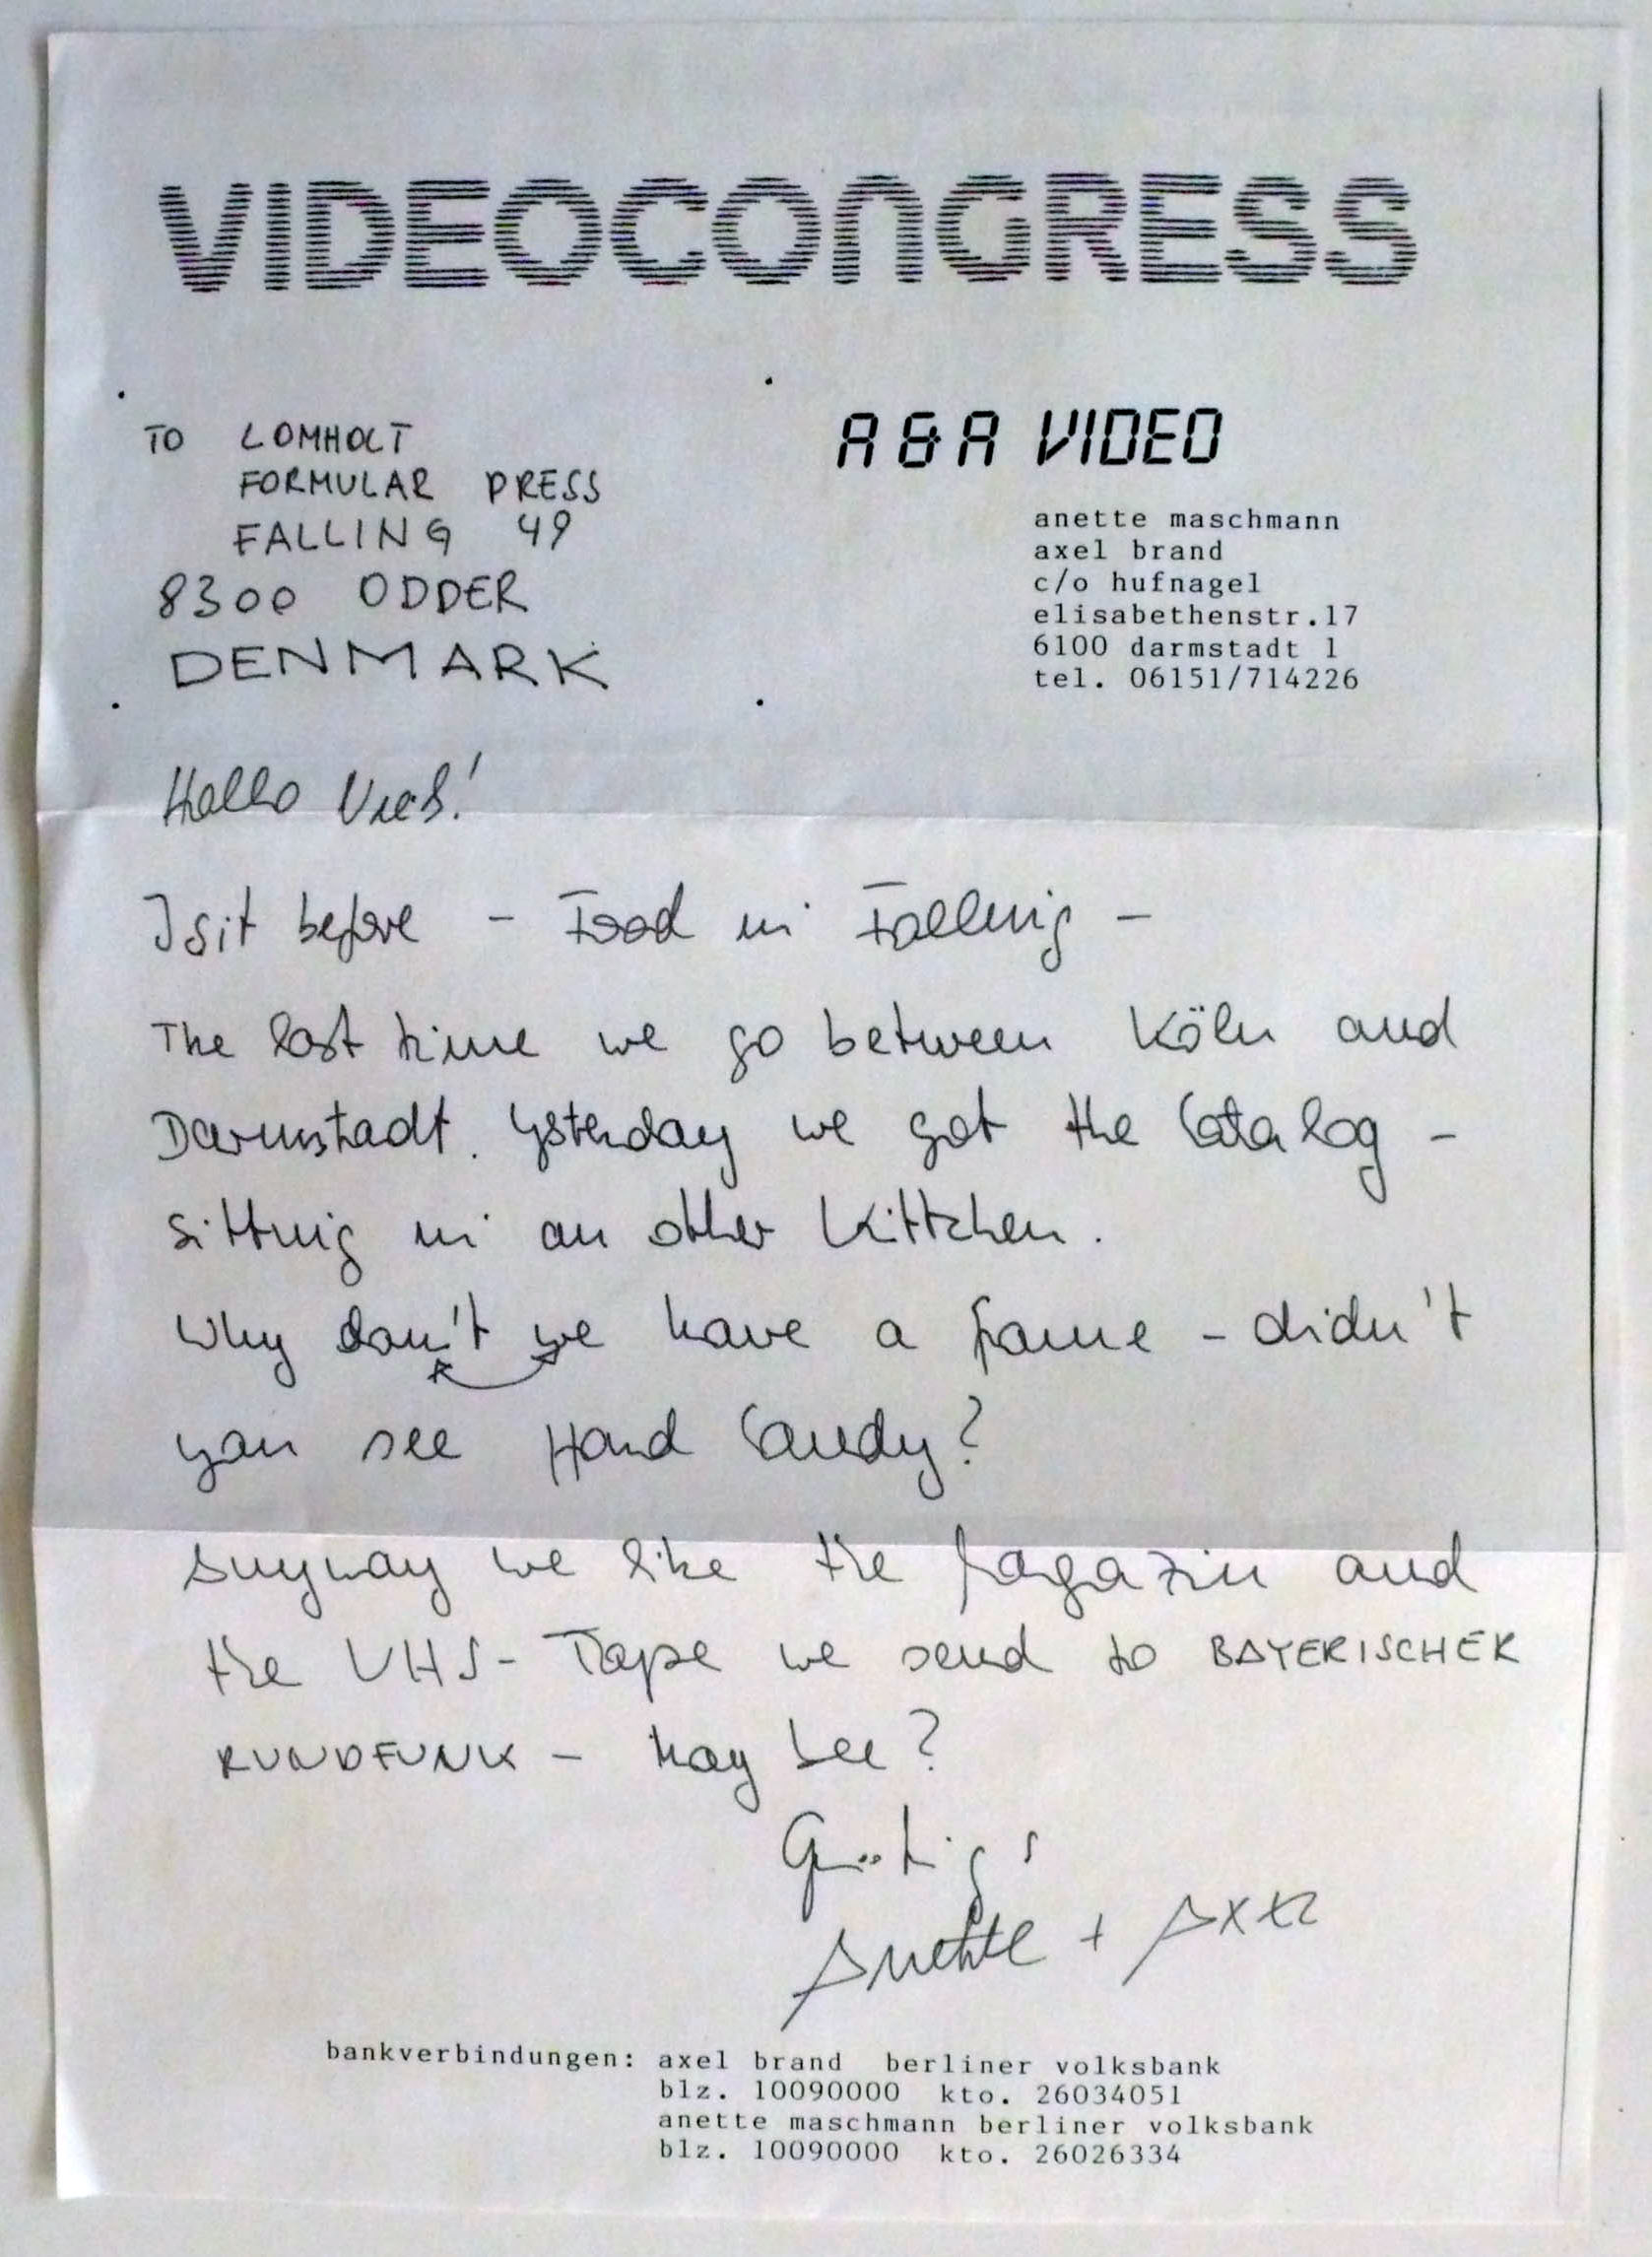 VIDEOCONGRESS
TO LOMHOLT
FORMULAR PRESS
FALLING 49
8300 ODDER
DENMARK
A & A VIDEO
anette maschmann
axel brand
c/o hufnagel
elisabethenstr.17
6100 darmstadt 1
tel. 06151/714226
Hallo
I sit before - Food in Falling -
The last time we go between Köln and
Darmstadt. Ysterday we got the Catalog -
sitting in an other Kittchen.
Why don't we have a fame - didn't
you see Hand Candy?
Anyway we like the and
the VHS-Tape we send to BAYERISCHER
RUNDFUNK - May bee?
Anette + Axel
bankverbindungen: axel brand berliner volksbank
blz. 10090000 kto. 26034051
anette maschmann berliner volksbank
blz. 10090000 kto. 26026334